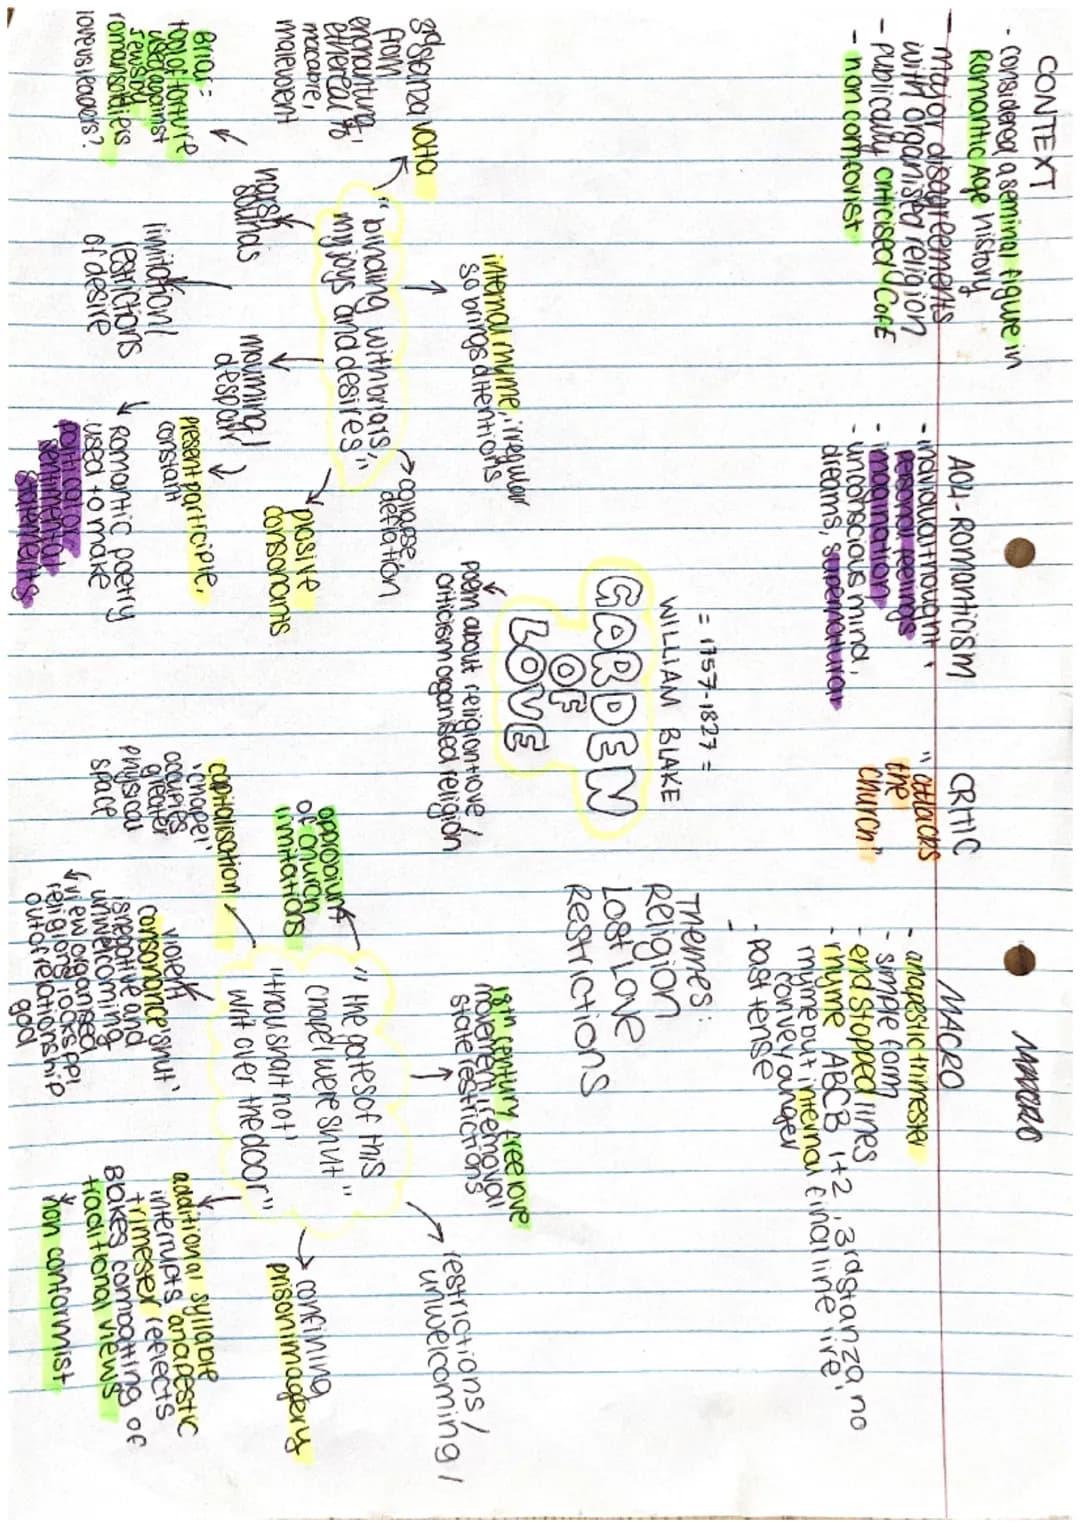 CONTEXT
- considered a seminal figure in
Romantic Age history
- Major disagreements
with organised religion
- publically criticised CofE
- non comfornist
AO4 - ROMANTICISM
- individual thought,
personal feelings
- imagination
- unconscious mind,
dreams, supernatural
CRITIC
"attacks
the
church"
MACRO
MACRO
- anapestic trimester
- simple form
- end stopped lines
- rhyme ABCB 1+2, 3rd stanza, no
rhyme but internal (final line
convey anger
- past tense
= 1757-1827 =
WILLIAM BLAKE
GARDEN
OF
LOVE
poem about religion + love /
criticism organised religion
Themes:
Religion
Lost Love
Restrictions
internal rhyme, irregular
so brings attention
3rd stanza volta
from
enchanting,
ethereal to
macabre,
malevolent
"binding with briars,
my joys and desires"
collapse,
deflation
harsh
sounds
Briar =
tool of torture
used against
Jews by
roman soldiers
lovers leaders?
limitation/
restrictions
of desire
mourning/
despair
present participle,
constant
plosive
consonants
Romantic poetry
used to make
political or
sentimental
statements
18th century free love
movement removal
state restrictions
restrictions /
unwelcoming /
"the gates of this
chapel were shut"
"thou shalt not'
writ over the door"
opprobium
of church
limitations
capitalisation
'chapel'
occupies
greater
physical
space
violent
consonance 'shut'
is negative and
unwelcoming
view organised
religion locks ppl
out of relationship
god
confining
prison imagery
additional syllable
interrupts anapestic
trimester reflects
Blakes combatting of
traditional views
non conformist